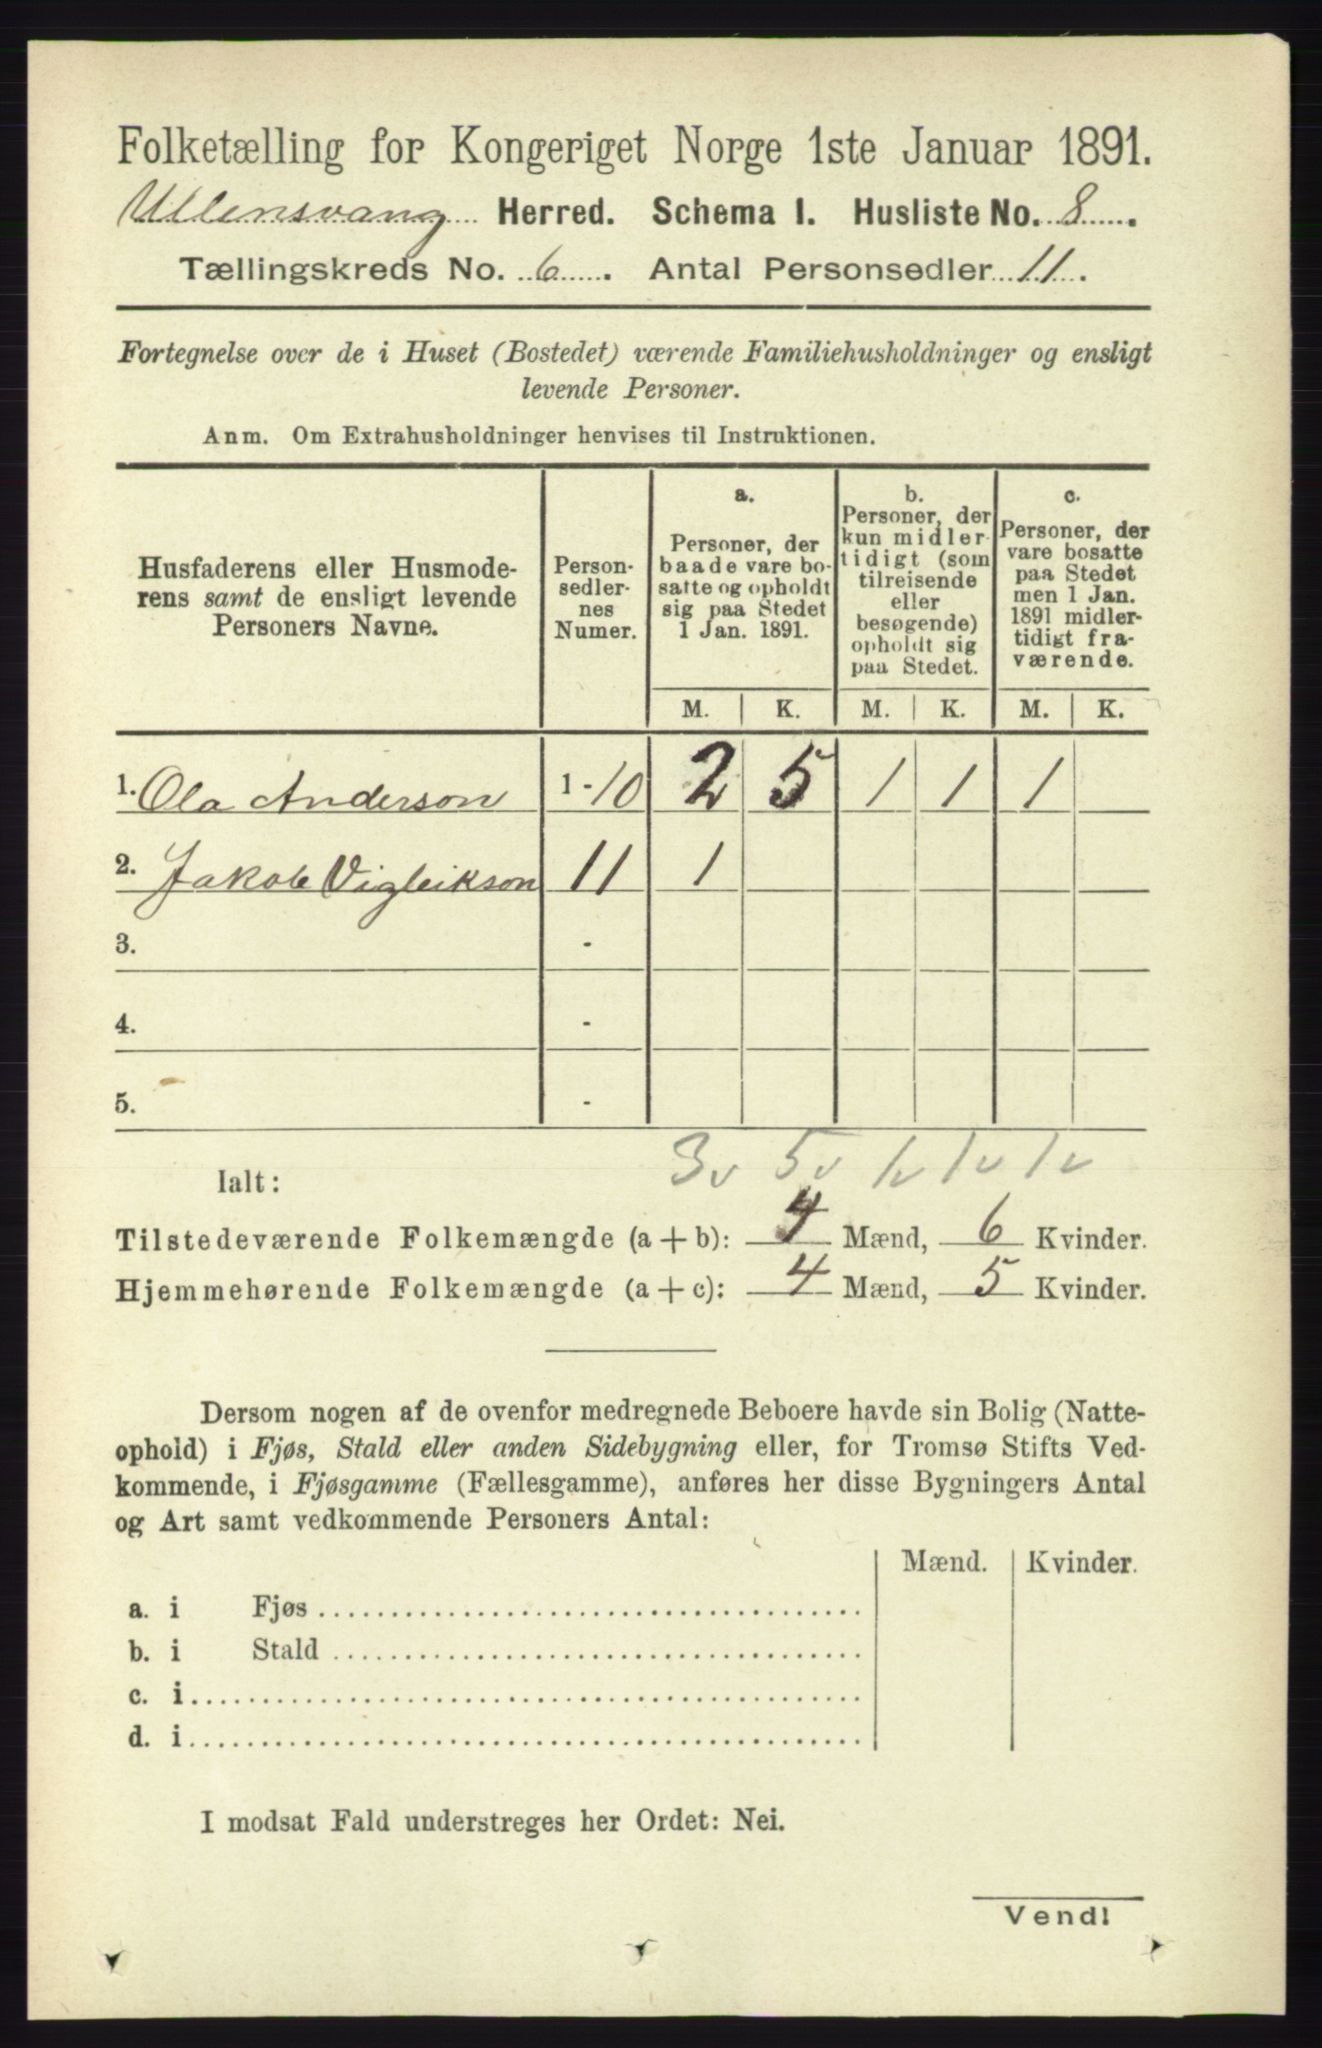 Folketælling for Kongeriget Norge 1ste Januar 1891.
Ullensvang Herred. Schema I. Husliste No. 8.
Tællingskreds No. 6. Antal Personsedler 11.
Fortegnelse over de i Huset (Bostedet) værende Familiehusholdninger og ensligt
levende Personer.
Anm. Om Extrahusholdninger henvises til Instruktionen.
Husfaderens eller Husmode-
rens samt de ensligt levende
Personers Navne.
Person-
sedler-
nes
Numer.
a.
Personer, der
baade vare bo-
satte og opholdt
sig paa Stedet
1 Jan. 1891.
b.
Personer, der
kun midler-
tidigt (som
tilreisende
eller
besøgende)
opholdt sig
paa Stedet.
c.
Personer, der
vare bosatte
paa Stedet
men 1 Jan.
1891 midler-
tidigt fra-
værende.
M. K. M. K. M. K.
1. Ola Anderson 1-10 2 5 1 1 1
2. Jakob Vigleikson 11 1
3. -
4. -
5. -
3v 5v 1v 1v 1v
Ialt:
Tilstedeværende Folkemængde (a+b): 4 Mænd, 6 Kvinder.
Hjemmehørende Folkemængde (a+c): 4 Mænd, 5 Kvinder.
Dersom nogen af de ovenfor medregnede Beboere havde sin Bolig (Natte-
ophold) i Fjøs, Stald eller anden Sidebygning eller, for Tromsø Stifts Ved-
kommende, i Fjøsgamme (Fællesgamme), anføres her disse Bygningers Antal
og Art samt vedkommende Personers Antal:
Mænd. Kvinder.
a. i Fjøs
b. i Stald
c. i
d. i
I modsat Fald understreges her Ordet: Nei.
Vend!